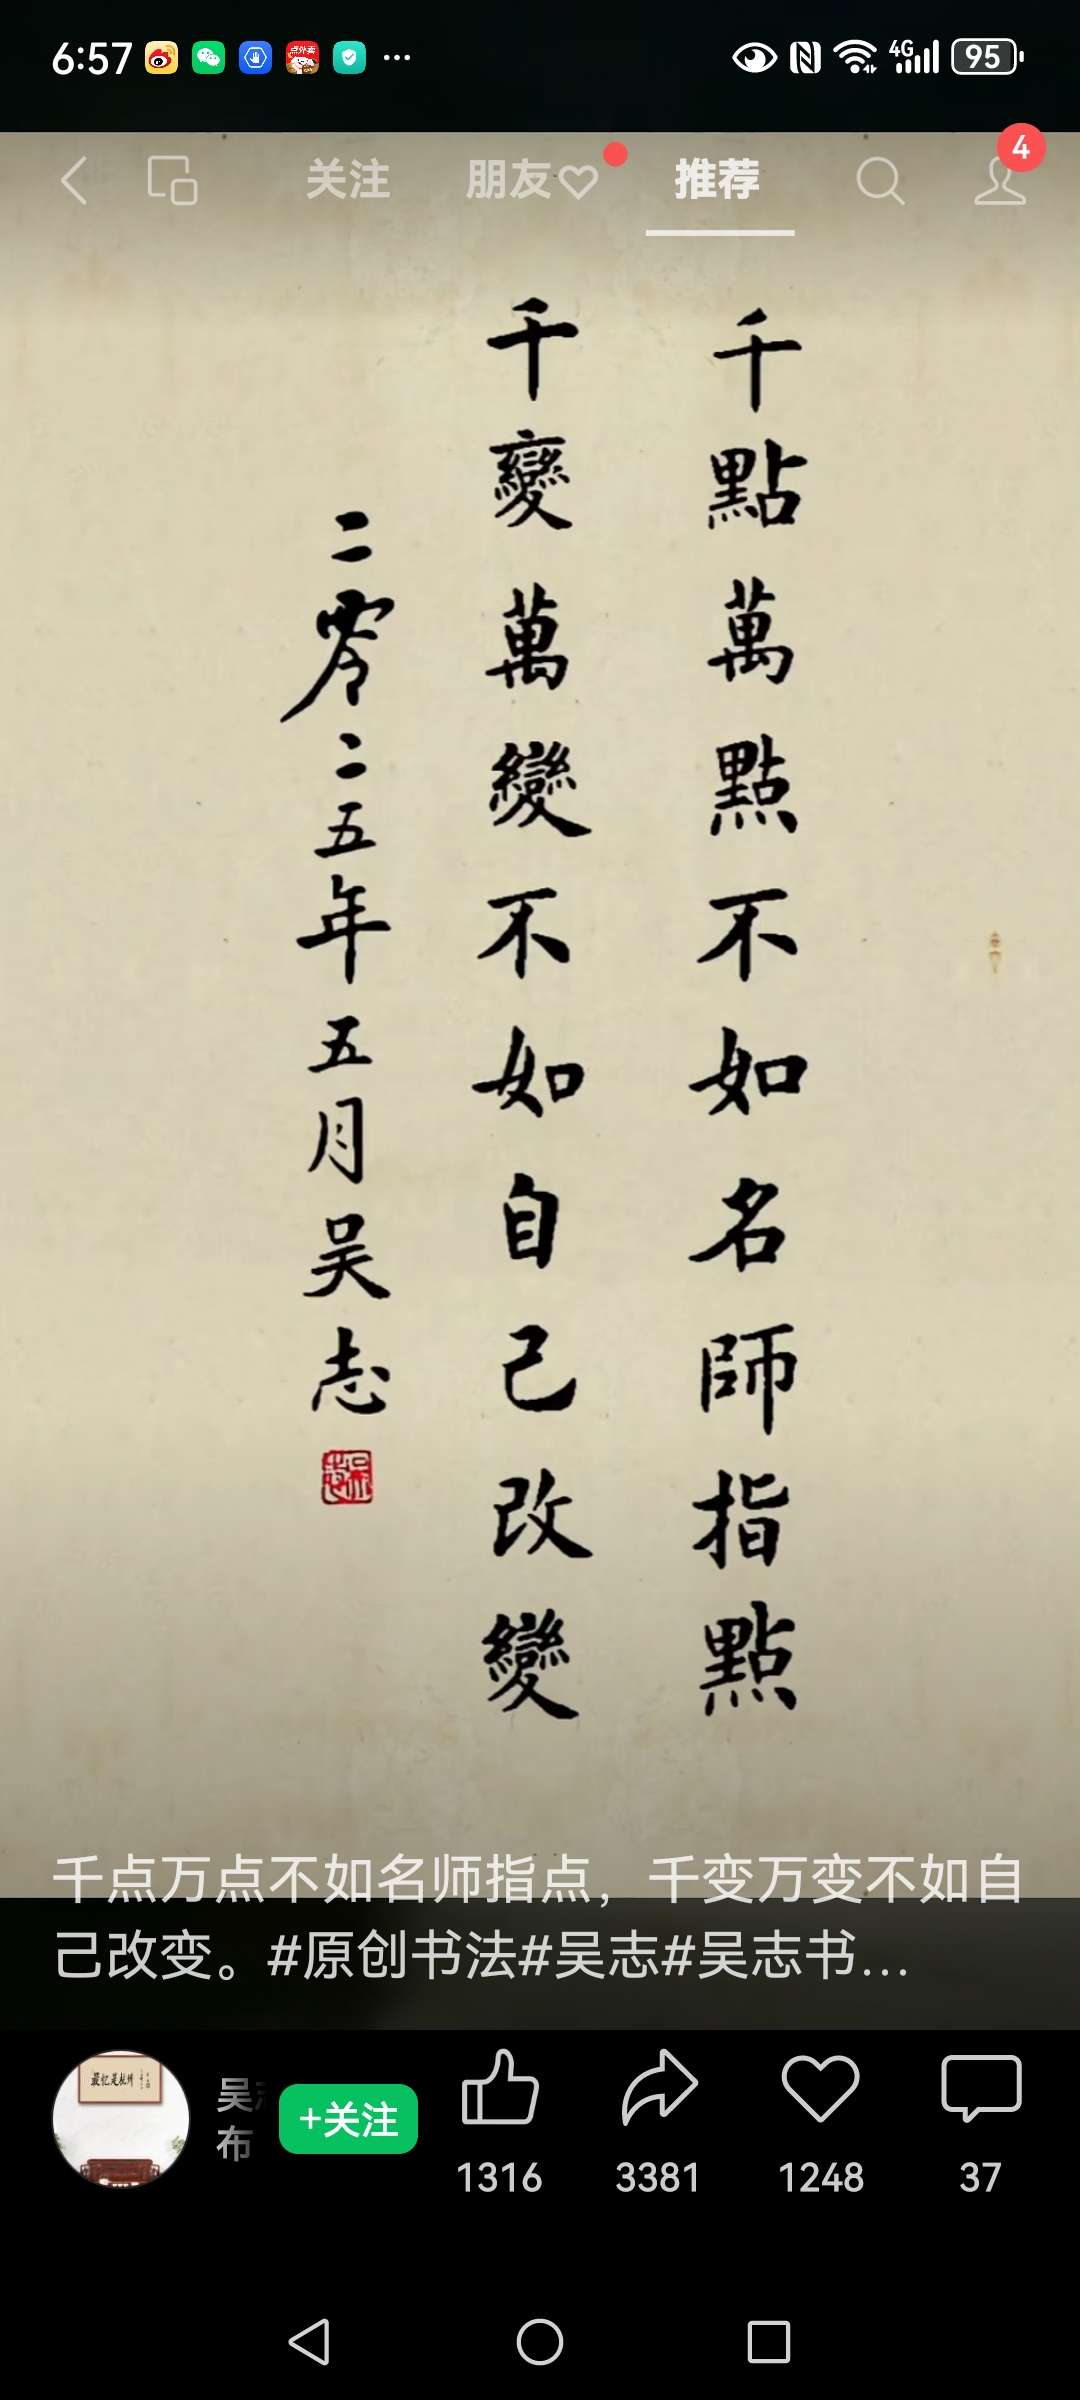 6:57
4G
95
关注
朋友
推荐
4
千點萬點不如名師指點
千變萬變不如自己改變
二零二五年五月吴志
千点万点不如名师指点，千变万变不如自
己改变。#原创书法#吴志#吴志书…
吴
布
+关注
1316
3381
1248
37